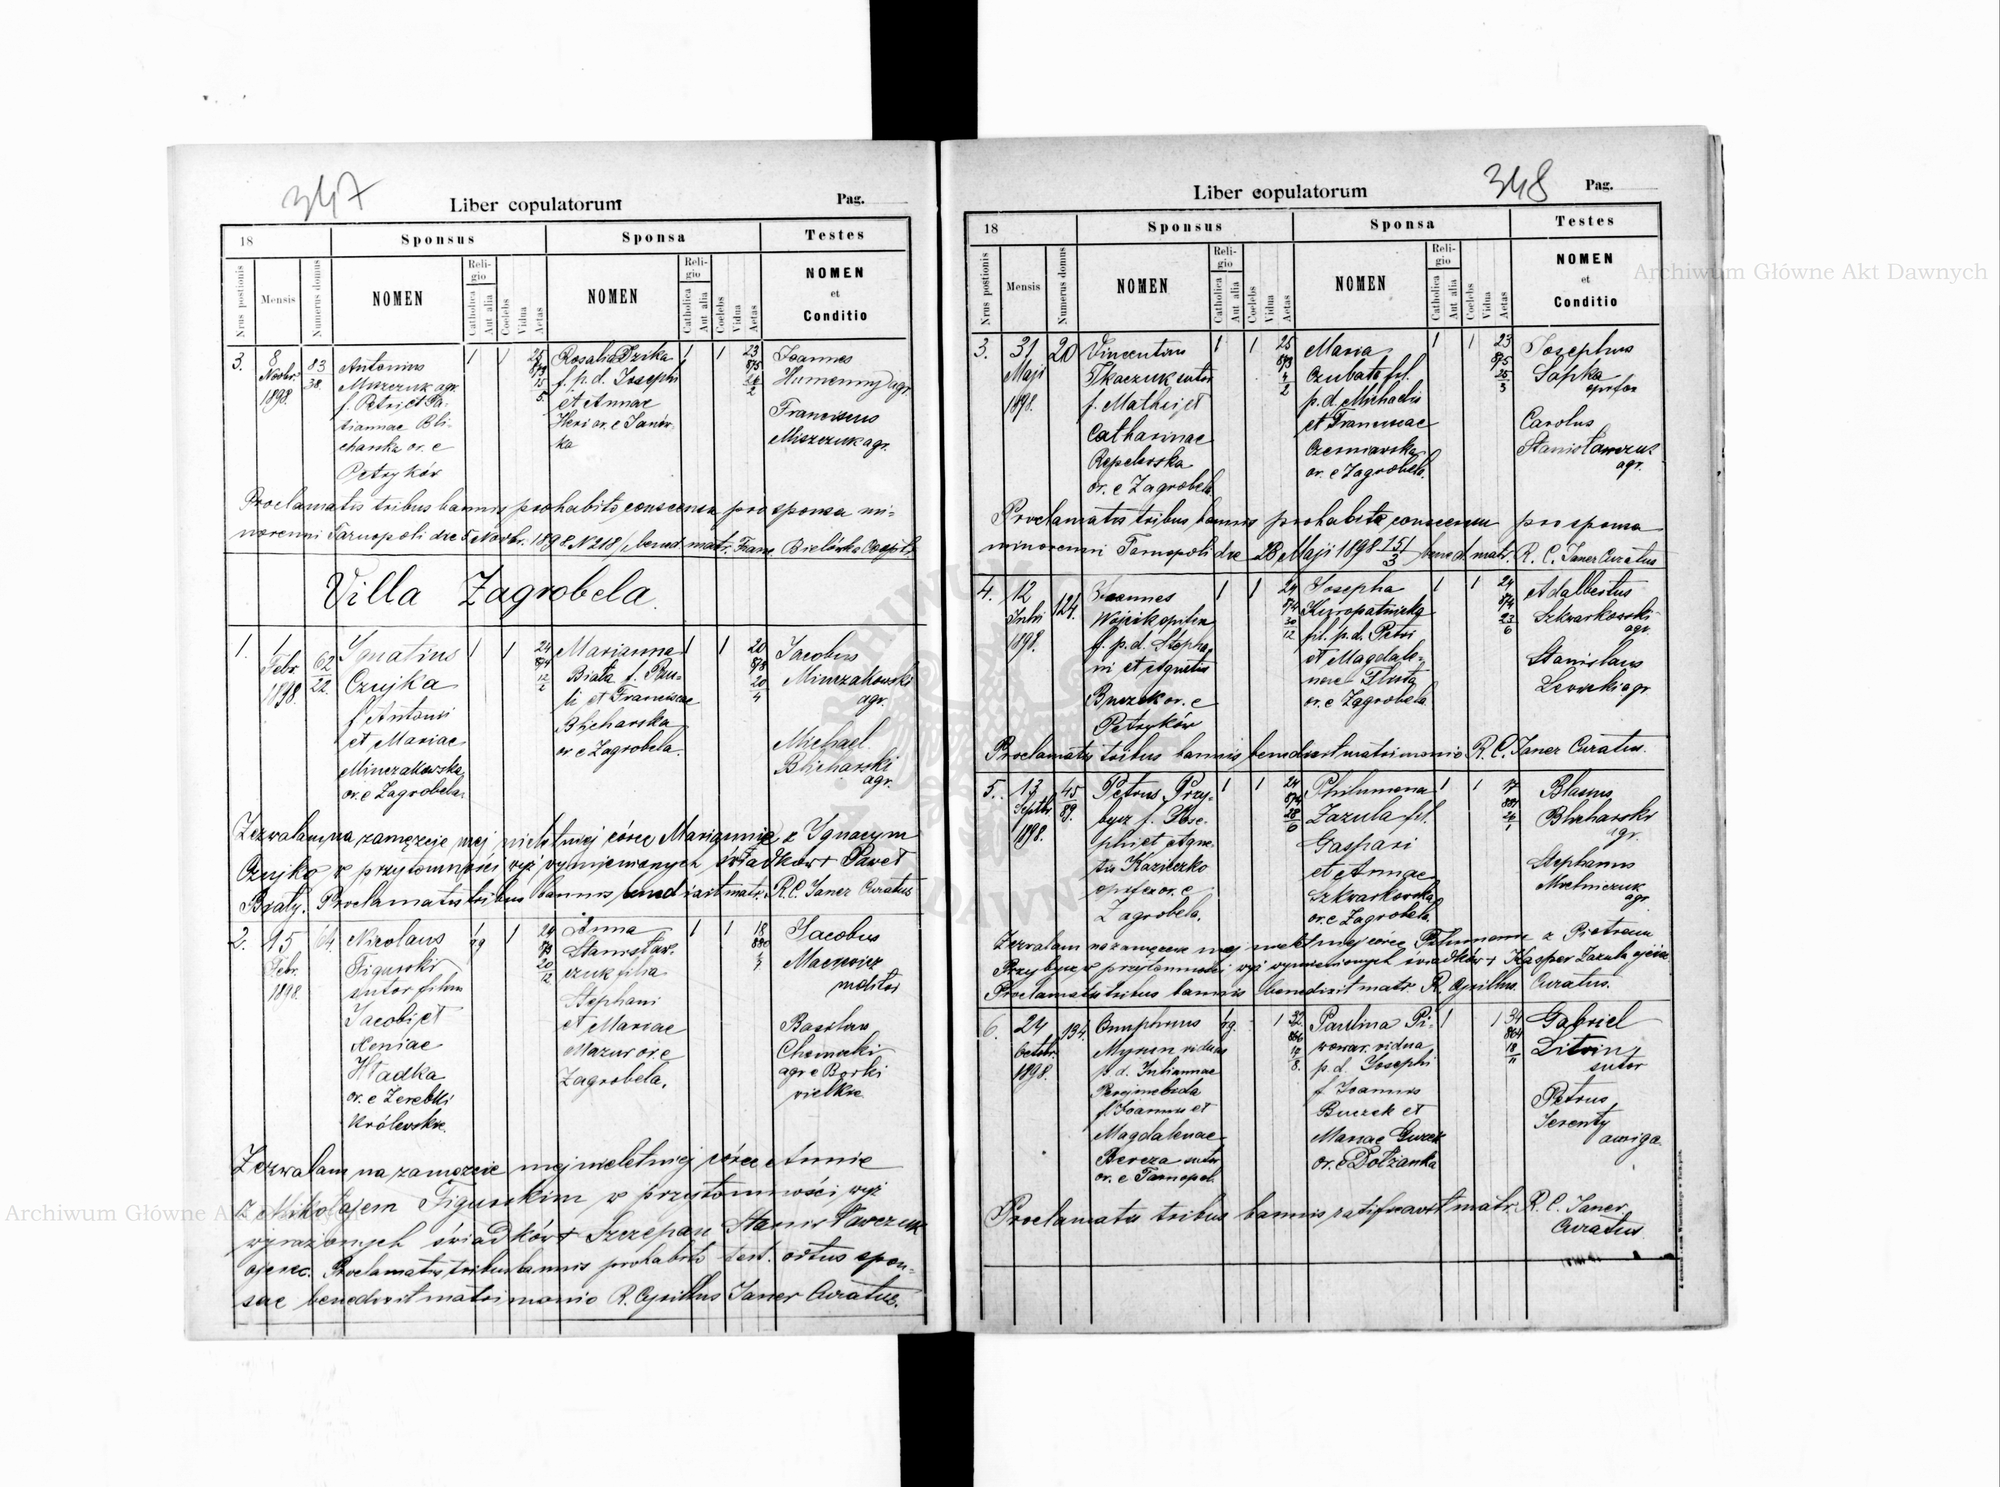 347
Liber copulatorum
Pag.
18
Sponsus
Sponsa
Testes
Nrus postionis
Mensis
Numerus domus
NOMEN
Religio
Catholica
Aut alia
Coelebs
Vidua
Aetas
NOMEN
Religio
Catholica
Aut alia
Coelebs
Vidua
Aetas
NOMEN
et
Conditio
3.
8
Novbr.
1898.
83
38.
Antonius
Miszczuk agr.
f. Petri et Ta-
tiannae Bli-
charska or. e
Petryków
1
1
Rosalia
f. p. d. Josephi
et Annae
or. e Janów-
ka
1
1
23
875
Joannes
Humenny agr.
Franciscus
Miszczuk agr.
Proclamatis tribus bannis prohabito consensu pro sponsa mi-
norenni Tarnopoli dre 5 Novbr. 1898 N 218 / bened. matr. Franc.
Villa Zagrobela.
1.
1
Febr.
1898.
62
22.
Ignatius
Czujka
f. Antoni
et Mariae
Minczakowska
or. e Zagrobela.
1
1
24
874
12
2
Marianna
Biała f. Pau-
li et Franciscae
Blicharska
or e Zagrobela.
1
1
20
878
20
4
Jacobus
Minczakowski
agr.
Michael
Blicharski
agr.
Zezwalam na zamęzcie mej nieletniej córce Mariannie z Ignacym
Czujko w przytomności wyż wymienionych świadków + Paweł
Biały. Proclamatis tribus bannis benedixit matr. R. C. Janer Curatus
2.
15
Febr.
1898.
64.
Nicolaus
Figurski
sutor filius
Jacobi et
Xeniae
Hładka
or. e Zerebki
Królewskie.
1
24
873
20
12
Anna
Stanisław-
czuk filia
Stephani
et Mariae
Mazur or. e
Zagrobela.
1
1
18
880
Jacobus
Maciewicz
molitor
Basilius
agr e Borki
wielkie
Zezwalam na zamęzcie mej nieletniej córce Annie
z Mikołajem Figurskim w przytomności wyż
wyrażonych świadków + Szczepan Stanisławczuk
ojciec. Proclamatis tribus bannis prohabito test. ortus spon-
sae benedixit matrimonio R. Cyrillus Janer Curatus.
348
Liber copulatorum
Pag.
18
Sponsus
Sponsa
Testes
Nrus postionis
Mensis
Numerus domus
NOMEN
Religio
Catholica
Aut alia
Coelebs
Vidua
Aetas
NOMEN
Religio
Catholica
Aut alia
Coelebs
Vidua
Aetas
NOMEN
et
Conditio
3.
31
Maji
1898.
20
Vincentius
Tkaczuk sutor
f. Mathei et
Catharinae
Repelowska
or. e Zagrobela
1
1
25
873
4
2
Maria
Czubata fil.
p. d. Michaelis
et Franciscae
Czerniawska
or. e Zagrobela.
1
1
23
875
25
3
Josephus
Sapka
opifex
Carolus
Stanisławczuk
agr.
Proclamatis tribus bannis prohabito consensu pro sponsa
minorenni Tarnopoli dre 28 Maji 1898 151/3 bened. matr. R. C. Janer Curatus
4.
12
1898.
124.
Joannes
Wójcik opifex
f. p. d. Stepha-
ni et Agnetis
Buczek or. e
Petryków
1
1
24
874
30
12
Josepha
Kuropatnicka
fil. p. d. Petri
et Magdale-
nae
or. e Zagrobela.
1
1
24
874
23
6
Adalbertus
Szkwarkowski
agr.
Stanislaus
Lewicki agr
Proclamatis tribus bannis benedixit matrimonio R. C. Janer Curatus.
5.
13
Septbr.
1898.
45.
89.
Petrus Przy-
bysz f. Jose-
phi et Agne-
tis Kazieczko
opifex or. e
Zagrobela.
1
1
24
874
28
6
Philumena
Zazula fil.
Gaspari
et Annae
Szkwarkowska
or. e Zagrobela
1
1
17
881
24
1
Blasius
Blicharski
agr.
Stephanus
Mielniczuk
agr
Zezwalam na zamęzcie mej nieletniej córce Filumenie z Piotrem
Przybysz w przytomności wyż wymienionych świadków + Kasper Zazula ojciec
Proclamatis tribus bannis benedixit matr. R. Cyrillus. Curatus.
6.
24
Octobr.
1898.
194.
Onuphrius
Myron viduus
p. d. Juliannae
f. Joannis et
Magdalenae
Bereza sutor
or. e Tarnopol.
1
32
866
17
8.
Paulina Pi-
wowar. vidua
p. d. Josephi
f. Joannis
Buczek et
Mariae
or. e Dołżanka
1
1
34
864
18
11
Gabriel
Litwin
sutor
Petrus
Serenty
auriga
Proclamatis tribus bannis ratificavit matr. R. C. Janer
Curatus.
Archiwum Główne Akt Dawnych
Archiwum Główne Akt Dawnych